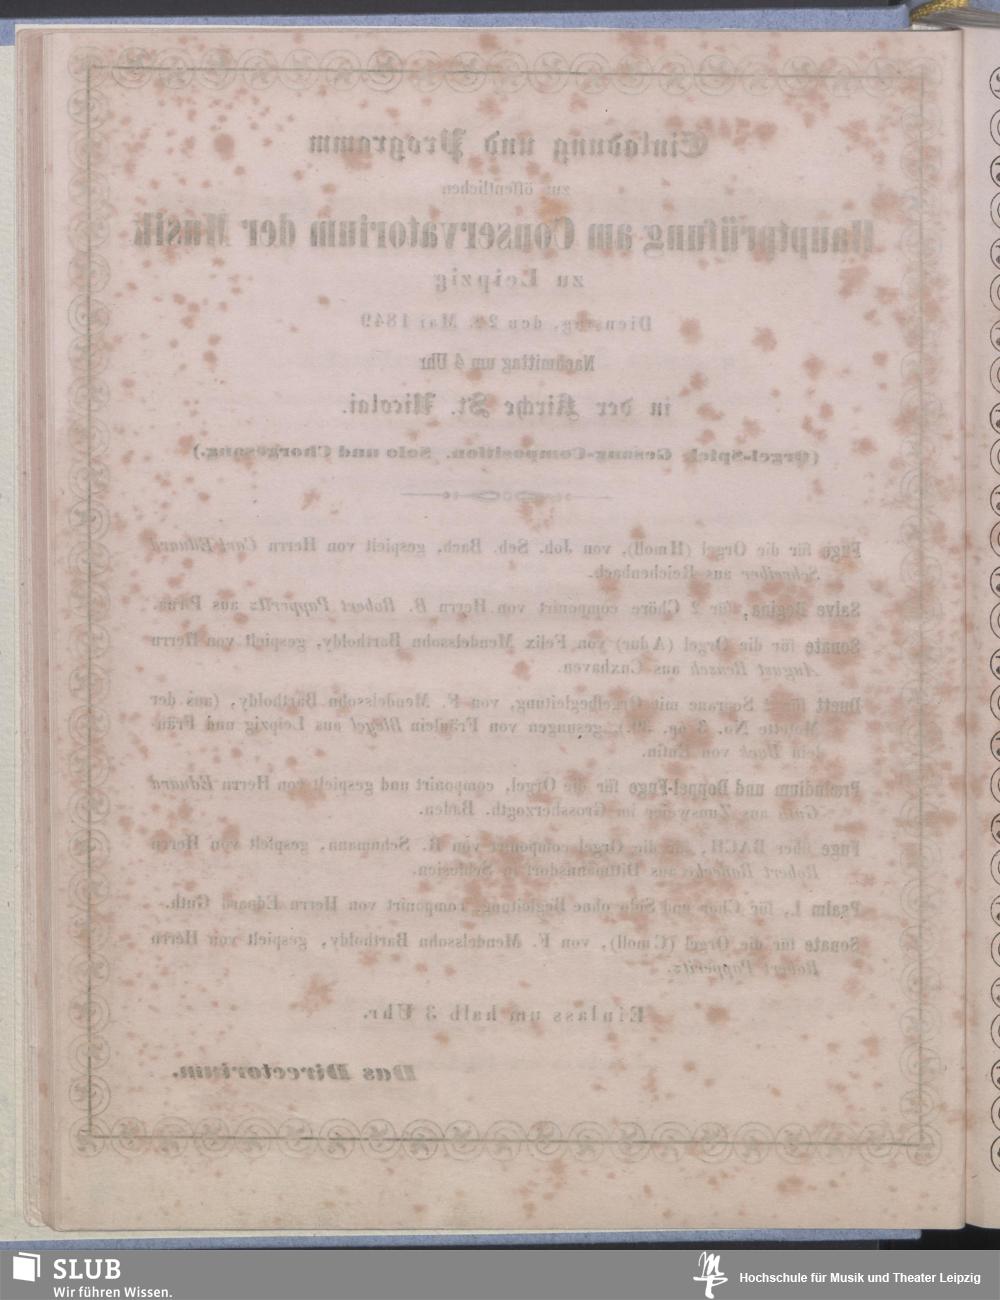 Einladung und Programm
zur öffentlichen
Hauptprüfung am Conservatorium der Musik
zu Leipzig
Dienstag, den Mai 1849
Nachmittag um 4 Uhr
in der Kirche St. Nicolai.
(Orgel-Spiel, Gesang-Composition, Solo und Chorgesang.)
Fuge für die Orgel (Hmoll), von Joh. Seb. Bach, gespielt von Herrn Carl Eduard
Schreiber aus Reichenbach.
Salve Regina, für 2 Chöre componirt von Herrn B. Robert Papperitz aus Pirna.
Sonate für die Orgel (Adur) von Felix Mendelssohn Bartholdy, gespielt von Herrn
August aus Cuxhaven.
Duett für 2 Soprane mit Orgelbegleitung, von F. Mendelssohn Bartholdy, (aus der
Motette No. 3 op. 39.), gesungen von Fräulein aus Leipzig und Fräu-
lein von Eutin.
Praeludium und Doppel-Fuge für die Orgel, componirt und gespielt von Herrn Eduard
aus im Grossherzogth. Baden.
Fuge über BACH, für die Orgel componirt von R. Schumann, gespielt von Herrn
Robert aus Dittmannsdorf in Schlesien.
Psalm 1. für Chor und Solo ohne Begleitung, componirt von Herrn Eduard Guth.
Sonate für die Orgel (Cmoll), von F. Mendelssohn Bartholdy, gespielt von Herrn
Robert Papperitz.
Einlass um halb 3 Uhr.
Das Directorium.
SLUB
Wir führen Wissen.
Hochschule für Musik und Theater Leipzig